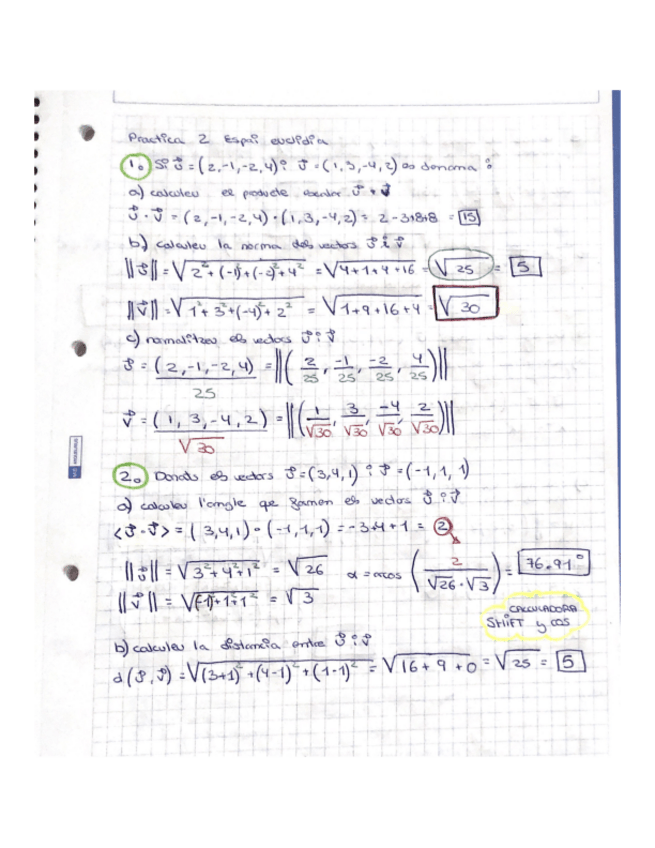 Practica 2 Espai euclidia
1. Si ū = (2,-1,-2,4) i v̄ = (1,3,-4,2) es demana:
a) calculeu el producte escalar
ū · v̄ = (2,-1,-2,4) · (1,3,-4,2) = 2-3+8+8 = 15
b) calculeu la norma dels vectors ū i v̄
||ū|| = √2²+(-1)²+(-2)²+4² = √4+1+4+16 = √25 = 5
||v̄|| = √1²+3²+(-4)²+2² = √1+9+16+4 = √30
c) normalitzeu els vectors ū i v̄
ū = (2,-1,-2,4)/25 = ||(2/25, -1/25, -2/25, 4/25)||
v̄ = (1,3,-4,2)/√30 = ||(1/√30, 3/√30, -4/√30, 2/√30)||
2. Donats els vectors ū = (3,4,1) i v̄ = (-1,1,1)
a) calculeu l'angle que formen els vectors ū i v̄
<ū · v̄> = (3,4,1) · (-1,1,1) = -3+4+1 = 2
||ū|| = √3²+4²+1² = √26 α = arcos (2/√26·√3) = 76.91°
||v̄|| = √(-1)²+1²+1² = √3
CALCULADORA
SHIFT y cos
b) calculeu la distancia entre ū i v̄
d(ū,v̄) = √(3+1)²+(4-1)²+(1-1)² = √16+9+0 = √25 = 5